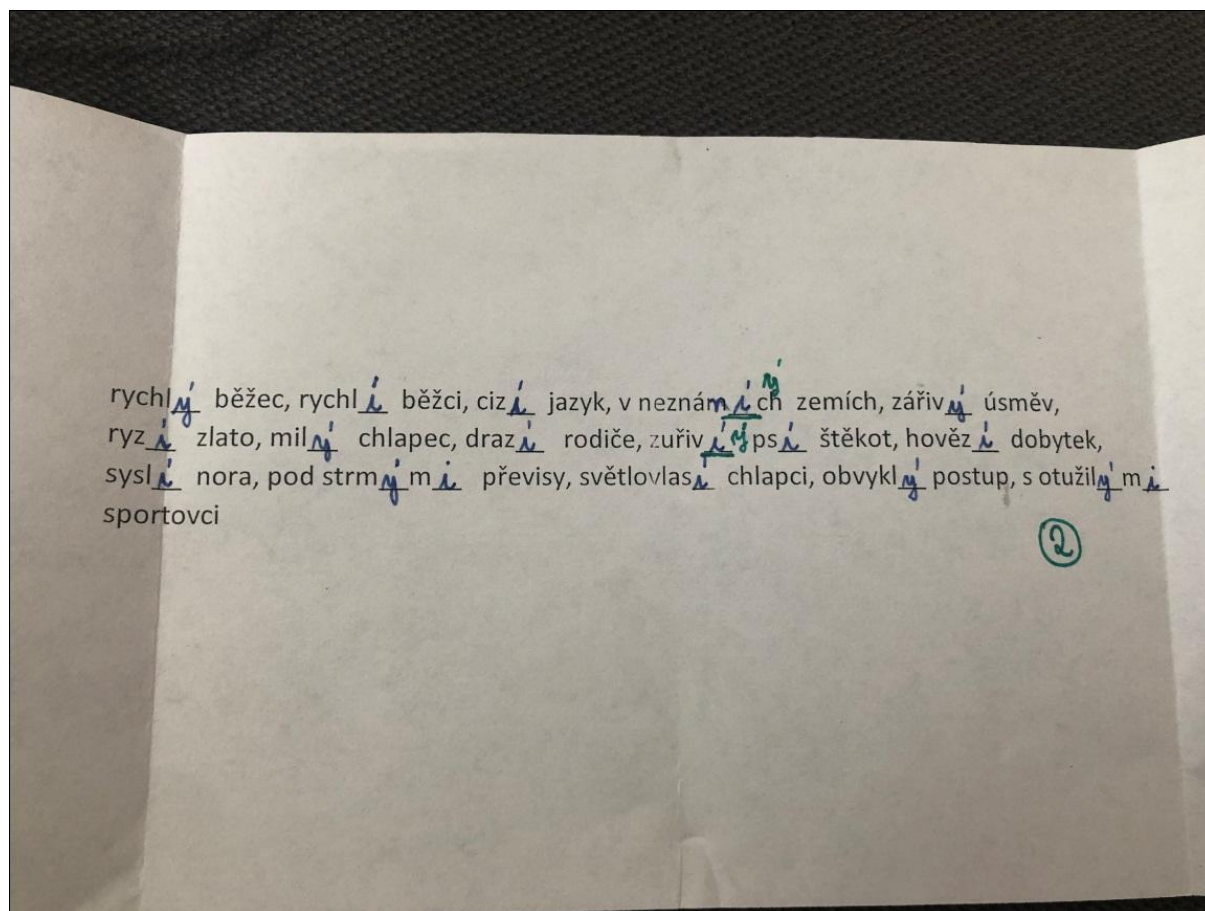 ý
rychlý běžec, rychlí běžci, cizí jazyk, v neznámích zemích, zářivý úsměv,
ryzí zlato, milý chlapec, drazí rodiče, zuřiví ý psí štěkot, hovězí dobytek,
syslí nora, pod strmými převisy, světlovlasí chlapci, obvyklý postup, s otužilými
sportovci
2